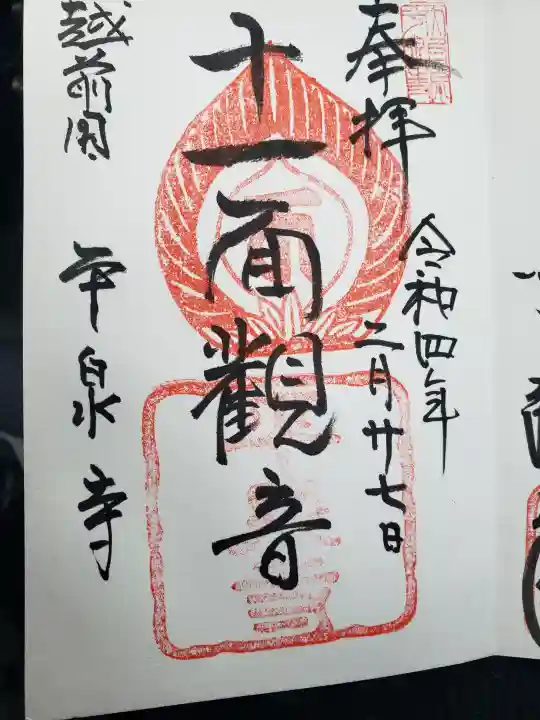 奉拝
令和四年二月廿七日
十一面觀音
越前国
平泉寺